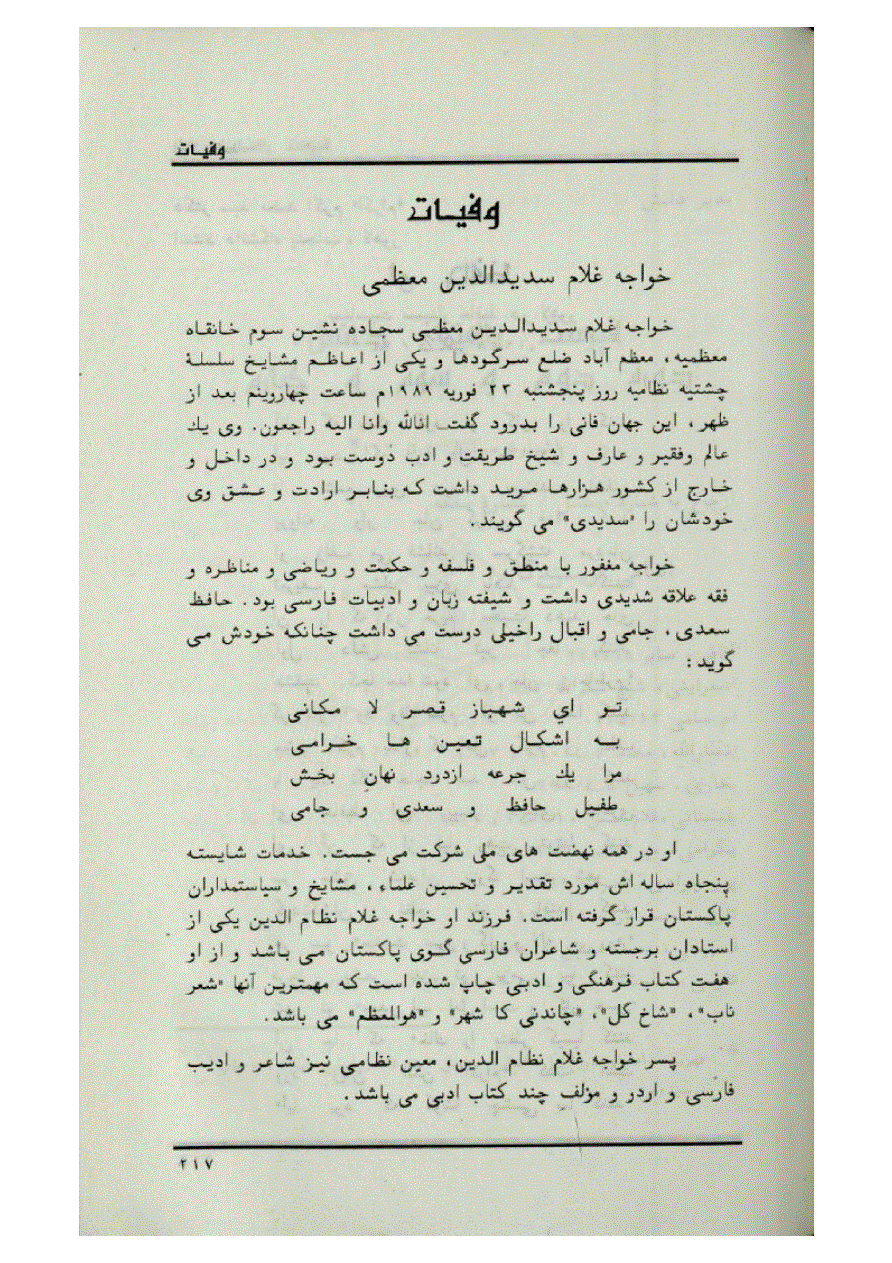 وفیـات
وفیـات
خواجه غلام سدیدالدین معظمی
خواجه غلام سدیدالـدیـن معظمی سجاده نشین سوم خانقاه
معظمیه، معظم آباد ضلع سرگودها و یکی از اعاظم مشایخ سلسلۀ
چشتیه نظامیه روز پنجشنبه ۲۳ فوریه ۱۹۸۹م ساعت چهارونیم بعد از
ظهر، این جهان فانی را بدرود گفت انالله وانا الیه راجعون. وی یك
عالم وفقیر و عارف و شیخ طریقت و ادب دوست بود و در داخل و
خارج از کشور هزارها مرید داشت که بنابر ارادت و عشق وی
خودشان را "سدیدی" می گویند.
خواجه مغفور با منطق و فلسفه و حکمت و ریاضی و مناظره و
فقه علاقه شدیدی داشت و شیفته زبان و ادبیات فارسی بود. حافظ
سعدی، جامی و اقبال راخیلی دوست می داشت چنانکه خودش می
گوید:
تو اي شهباز قصر لا مکانی
به اشکال تعین ها خرامی
مرا یك جرعه ازدرد نهان بخش
طفیل حافظ و سعدی و جامی
او در همه نهضت های ملی شرکت می جست. خدمات شایسته
پنجاه ساله اش مورد تقدیر و تحسین علماء، مشایخ و سیاستمداران
پاکستان قرار گرفته است. فرزند او خواجه غلام نظام الدین یکی از
استادان برجسته و شاعران فارسی گوی پاکستان می باشد و از او
هفت کتاب فرهنگی و ادبی چاپ شده است که مهمترین آنها "شعر
ناب"، "شاخ کل"، "چاندنی کا شهر" و "هوالمعظم" می باشد.
پسر خواجه غلام نظام الدین، معین نظامی نیز شاعر و ادیب
فارسی و اردر و مؤلف چند کتاب ادبی می باشد.
۲۱۷